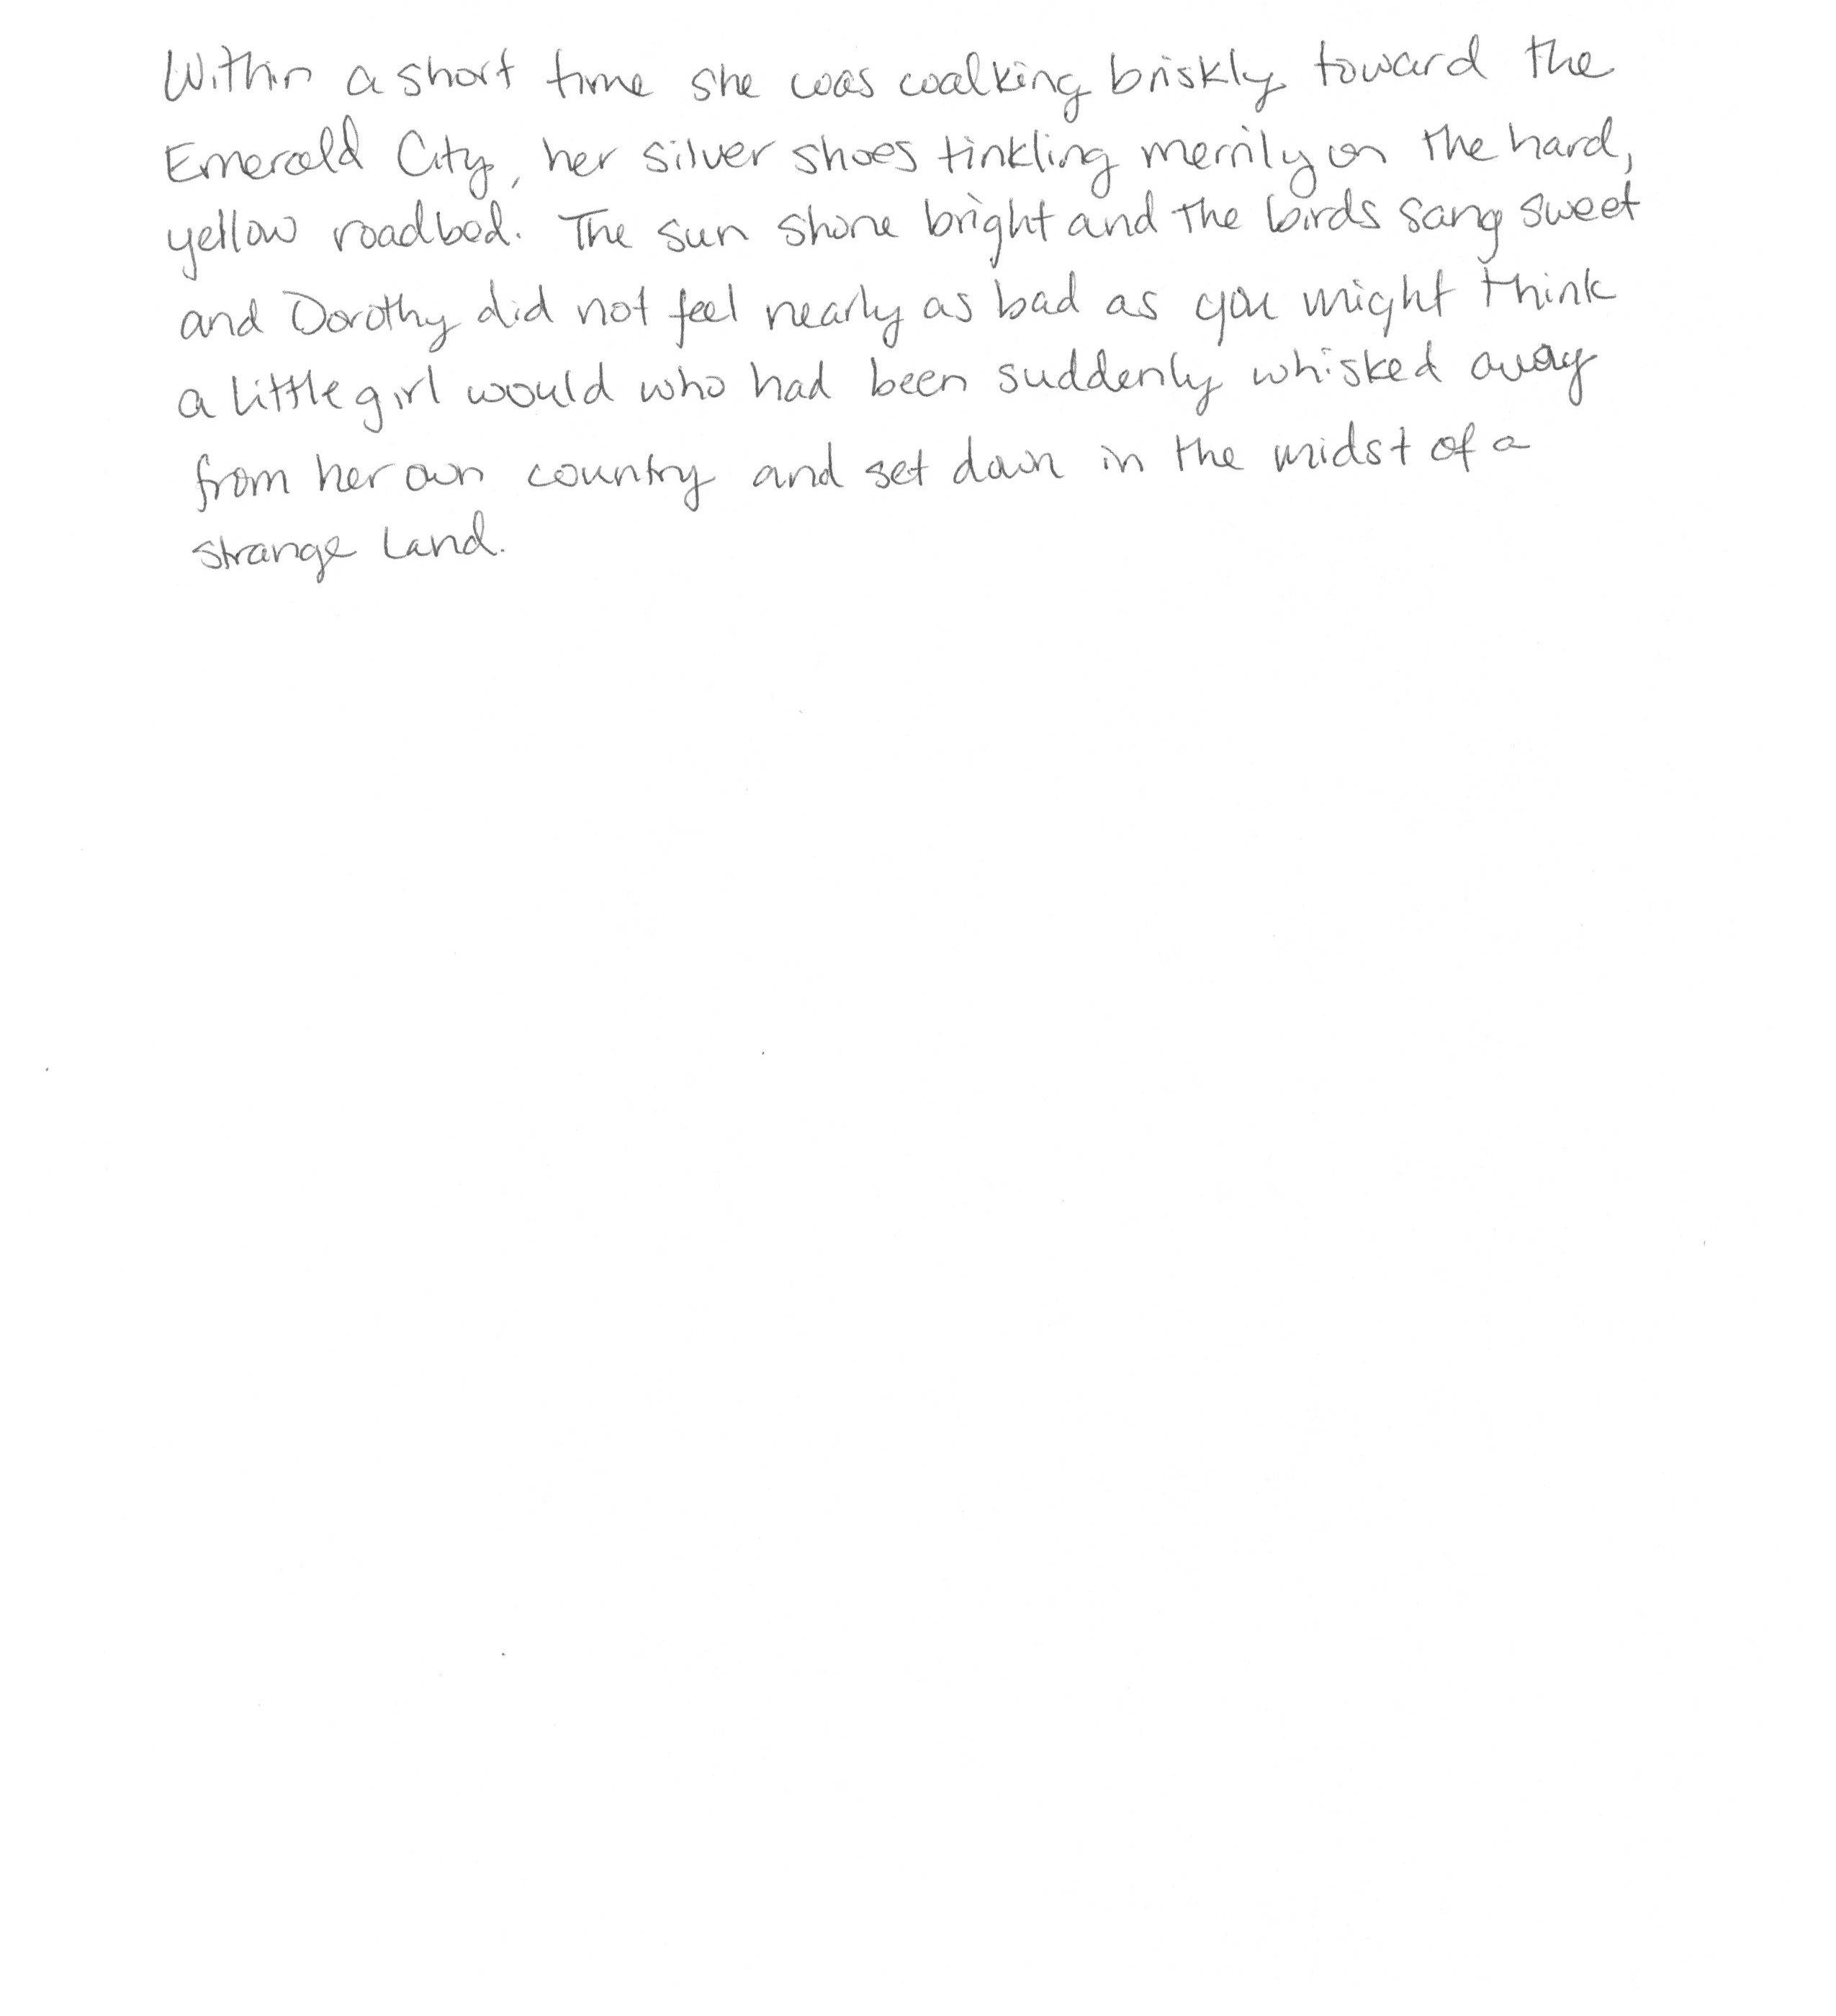 Within a short time she was walking briskly toward the
Emerald City, her silver shoes tinkling merrily on the hard,
yellow roadbed. The sun shone bright and the birds sang sweet
and Dorothy did not feel nearly as bad as you might think
a little girl would who had been suddenly whisked away
from her own country and set down in the midst of a
strange land.